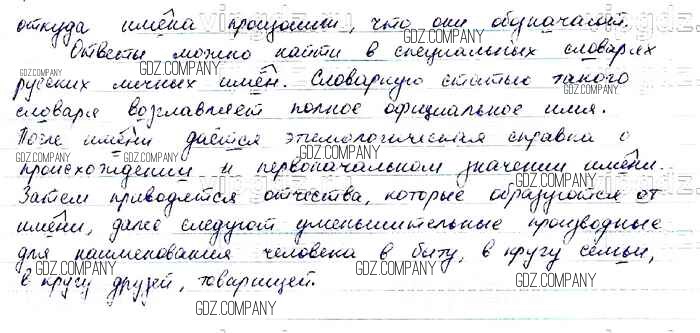 откуда имена произошли, что они обозначают.
Ответы можно найти в специальных словарях
GDZ.COMPANY GDZ.COMPANY GDZ.COMPANY
русских личных имён. Словарную статью такого
GDZ.COMPANY
словаря возглавляет полное официальное имя.
GDZ.COMPANY GDZ.COMPANY
После имени даётся этимологическая справка о
GDZ.COMPANY GDZ.COMPANY GDZ.COMPANY
происхождении и первоначальном значении имени.
GDZ.COMPANY
Затем приводятся отчества, которые образуются от
GDZ.COMPANY
имени, далее следуют уменьшительные производные
для наименования человека в быту, в кругу семьи,
GDZ.COMPANY GDZ.COMPANY GDZ.COMPANY
в кругу друзей, товарищей.
GDZ.COMPANY